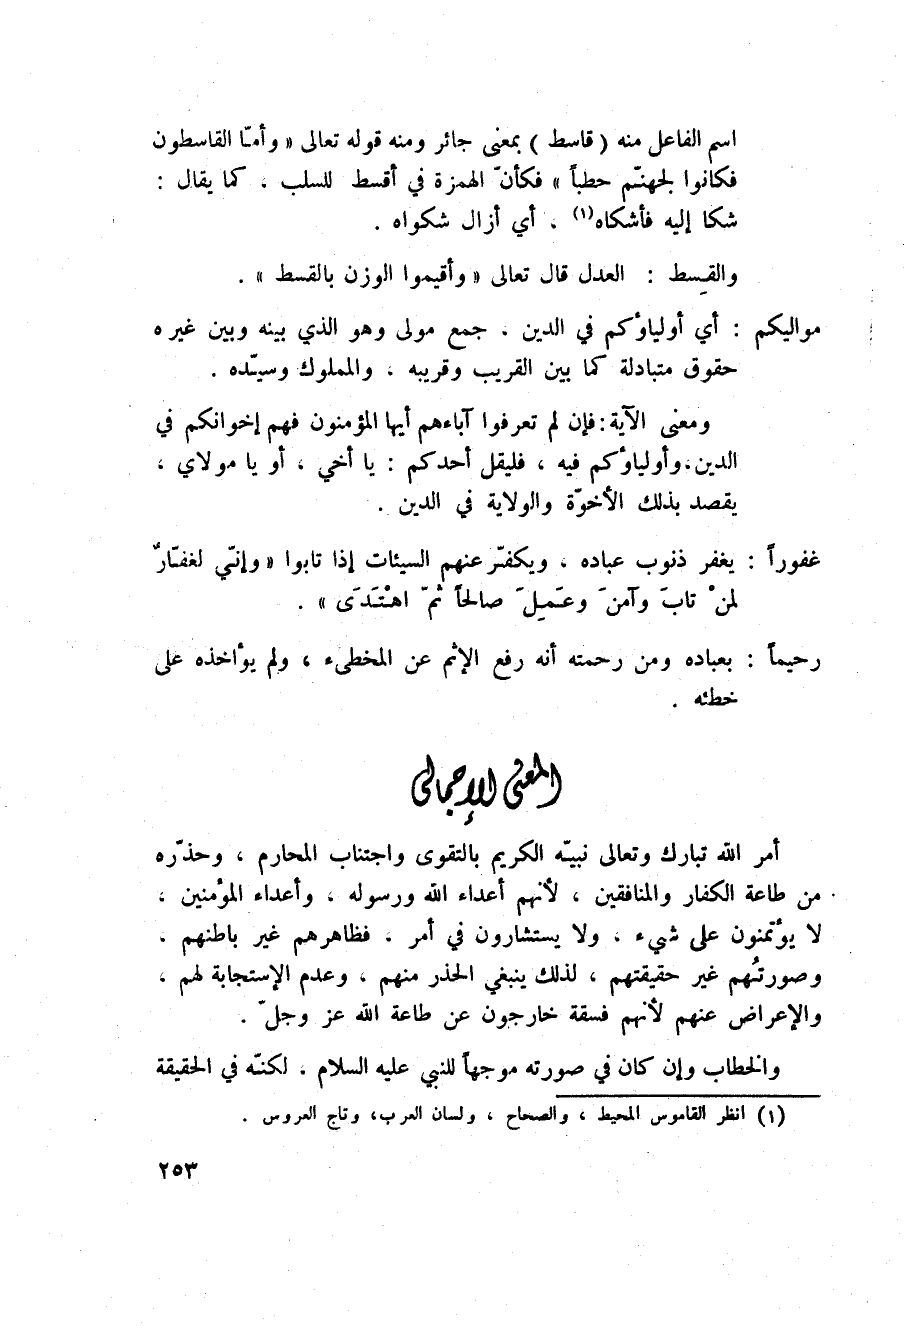 اسم الفاعل منه ( قاسط ) بمعنى جائر ومنه قوله تعالى « وأمّا القاسطون
فكانوا لجهنّم حطباً » فكأنّ الهمزة في أقسط للسلب ، كما يقال :
شكا إليه فأشكاه(١) ، أي أزال شكواه .
والقِسط : العدل قال تعالى « وأقيموا الوزن بالقسط » .
مواليكم : أي أولياؤكم في الدين ، جمع مولى وهو الذي بينه وبين غيره
حقوق متبادلة كما بين القريب وقريبه ، والمملوك وسيّده .
ومعنى الآية : فإن لم تعرفوا آباءهم أيها المؤمنون فهم إخوانكم في
الدين ، وأولياؤكم فيه ، فليقل أحدكم : يا أخي ، أو يا مولاي ،
يقصد بذلك الأخوّة والولاية في الدين .
غفوراً : يغفر ذنوب عباده ، ويكفّر عنهم السيئات إذا تابوا « وإنّي لغفّارٌ
لمنْ تابَ وآمنَ وعَمِلَ صالحاً ثمّ اهْتَدَى » .
رحيماً : بعباده ومن رحمته أنه رفع الإثم عن المخطىء ، ولم يؤاخذه على
خطئه .
المعنى الإجمالي
أمر الله تبارك وتعالى نبيّه الكريم بالتقوى واجتناب المحارم ، وحذّره
من طاعة الكفار والمنافقين ، لأنهم أعداء الله ورسوله ، وأعداء المؤمنين ،
لا يؤتمنون على شيء ، ولا يستشارون في أمر ، فظاهرهم غير باطنهم ،
وصورتُهم غير حقيقتهم ، لذلك ينبغي الحذر منهم ، وعدم الإستجابة لهم ،
والإعراض عنهم لأنهم فسقة خارجون عن طاعة الله عز وجلّ .
والخطاب وإن كان في صورته موجهاً للنبي عليه السلام ، لكنّه في الحقيقة
(١) انظر القاموس المحيط ، والصحاح ، ولسان العرب ، وتاج العروس .
٢٥٣